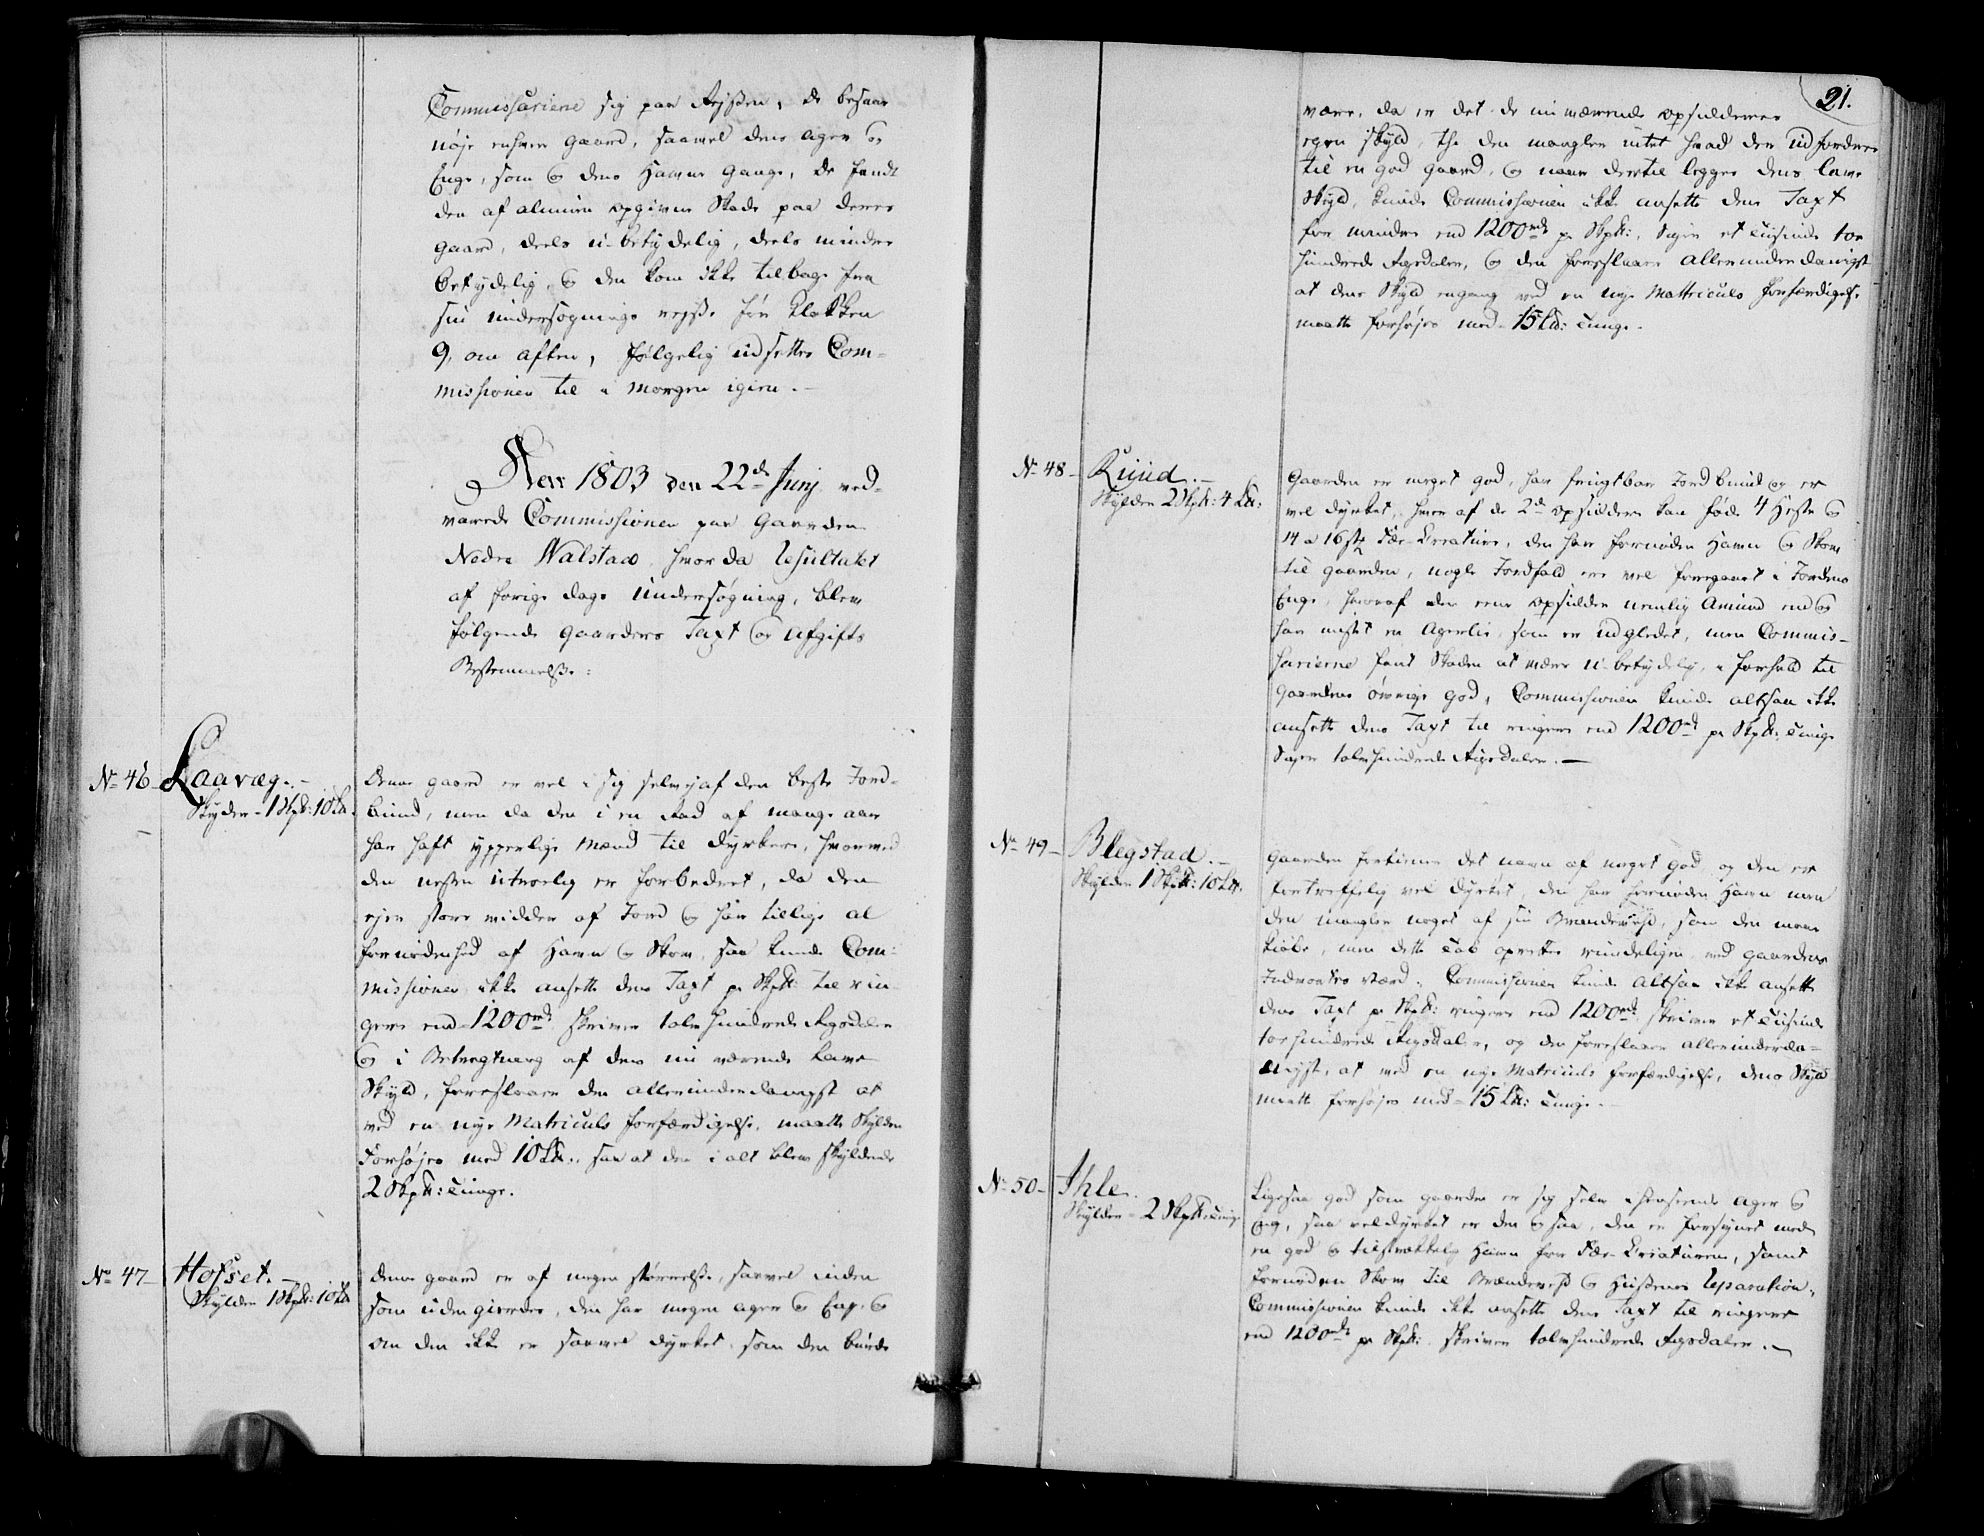 Commissariene sig paa Rejsen, de besaae
nøje enhver Gaard, saavel dens Ager og
Enge, som og dens Havne Gange, de fandt
den af almuen opgivne Skade paa deres
Gaard, deels u-betydelig, deels mindre
betydelig, og den kom ikke tilbage fra
sin undersøgnings rejse før Klokken
9, om aften, følgelig udsettes Com-
missionen til i morgen igien.
Aar 1803 den 22de Junj ved-
varede Commissionen paa Gaarden
Nedre Walstad, hvor da Resultatet
af forige dags Undersøgning, blev
følgende Gaarders Taxt og Afgifts
Bestemmelse:
No 46 Laavæg.
Skylder 1 Skp: 10 Ld.
Denne gaard er vel i sig selv af den beste Jord-
bund, men da den i en Rad af mange aar
har haft ypperlige Mænd til Dyrkere, hvorved
den nesten utroelig er forbedret, da den
ejer store vidder af Jord og har tillige al
fornødenhed af Havn og Skov, saa kunde Com-
missionen ikke ansette dens Taxt pr Skp: til rin-
gere end 1200rd skriver tolvhundrede Rigsdaler
og i Betragtning af dens nu værende lave
Skyld, foreslaaer den allerunderdanigst at
ved en nye Matriculs forfærdigelse, maatte Skylden
Forhøjes med 10 Ld: saa at den i alt blev skyldende
2 Skp: Tunge.
No 47 Hofset.
Skylden 1 Skp: 10 Ld
Denne gaard er af megen størrelse, saavel inden
som uden gierdes, den har megen ager og Eng, og
om den ikke er saavel dyrket, som den burde
21.
være, da er det de nu værende opsidderes
egen skyld, thi den mangler intet hvad der udfordres
til en god gaard, og naar dertil legges dens lave
Skyld, kunde Commissionen ikke ansette dens Taxt
for mindre end 1200rd pr Skp:, Siger et tusinde toe
hundrede Rigsdaler, og den foreslaaer allerunderdanigst
at dens Skyld engang ved en nye Mattriculs forfærdigelse
maatte forhøjes med 15 Ld: Tunge.
No 48 Ruud.
Skylden 2 Skp: 4 Ld:
Gaarden er meget god, har frugtbar Jordbund og er
vel dyrket, hver af de 2de opsiddere kan føde 4 Heste og
14 a 16 stk Fæe-Creature, den har fornøden Havn og Skov
til gaarden, nogle Jordfald ere vel foregaaet i Jordens
Enge, hvoraf den eene opsidder nemlig Amund endog
har mistet en Agerlie, som er udgledet, men Commis-
sarierne fant Skaden at være u-betydelig, i forhold til
Gaardens øvrige god, Commissionen kunde altsaa ikke
ansette dens Taxt til ringere end 1200rd pr Skp: Tunge
Siger tolvhundrede Rigsdaler.
No 49 Blegstad.
Skylden 1 Skp: 10 Ld.
Gaarden fortiener det navn af meget god, og den er
fortreffelig vel dyrket, den har fornøden Havn men
den mangler noget af sin Brændeved, som den maae
kiøbe, men dette Tab oprettes rundeligen ved gaardens
Indvortes værd. Commissionen kunde altsaa ikke ansette
dens Taxt pr Skp: ringere end 1200rd skriver et tusinde
toe hundrede Rigsdaler, og den foreslaaer allerunderda-
nigst, at ved en nye Matriculs forfærdigelse, dens Skyld
maatte forhøjes med 15 Ld: Tunge.
No 50 Ihle.
Skylden 2 Skp: Tunge
Ligesaa god som gaarden er sig selv i henseende Ager og
Eng, saa vel dyrket er den og saa, den er forsynet med
en god og tilstrækkelig Havn for Fæe-Creaturene, samt
fornøden Skov til Brændeved og Husenes Reparation,
Commissionen kunde ikke ansette dens Taxt til ringere
end 1200rd pr Skp: skriver tolvhundrede Rigsdaler.